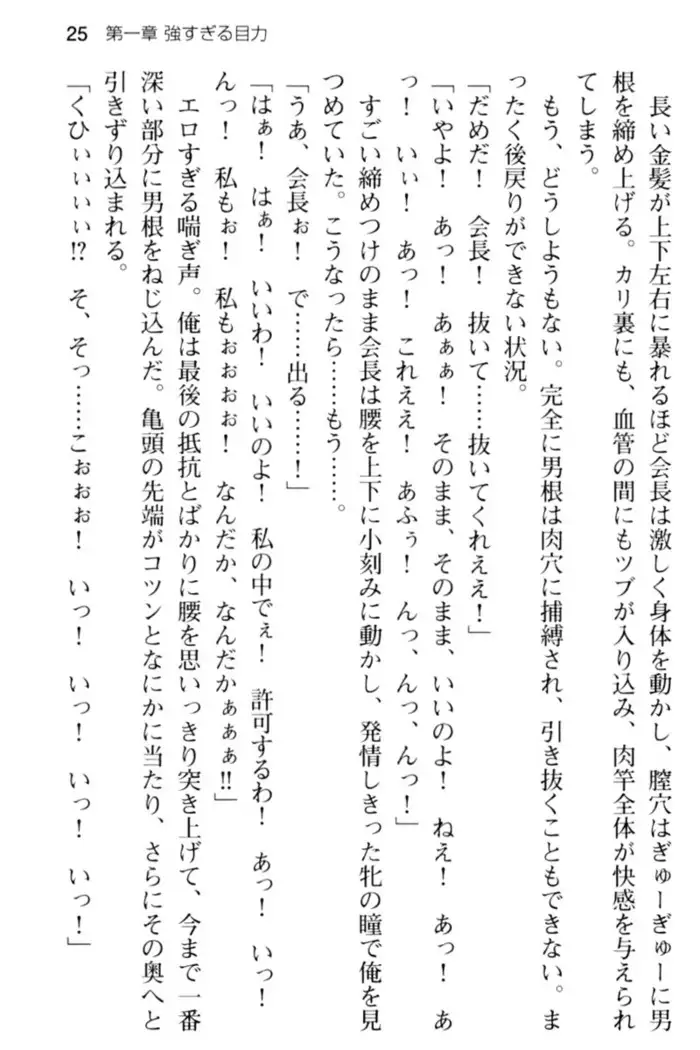 25 第一章 強すぎる目力
長い金髪が上下左右に暴れるほど会長は激しく身体を動かし、膣穴はぎゅーぎゅーに男
根を締め上げる。カリ裏にも、血管の間にもツブが入り込み、肉竿全体が快感を与えられ
てしまう。
もう、どうしようもない。完全に男根は肉穴に捕縛され、引き抜くこともできない。ま
ったく後戻りができない状況。
「だめだ! 会長! 抜いて……抜いてくれええ!」
「いやよ! あっ! あぁぁ! そのまま、そのまま、いいのよ! ねえ! あっ! あ
っ! いぃ! あっ! これええ! あふぅ! んっ、んっ、んっ!」
すごい締めつけのまま会長は腰を上下に小刻みに動かし、発情しきった牝の瞳で俺を見
つめていた。こうなったら……もう……。
「うあ、会長ぉ! で……出る……!」
「はぁ! はぁ! いいわ! いいのよ! 私の中でぇ! 許可するわ! あっ! いっ!
んっ! 私もぉ! 私もぉぉぉぉ! なんだか、なんだかぁぁぁ!!」
エロすぎる喘ぎ声。俺は最後の抵抗とばかりに腰を思いっきり突き上げて、今まで一番
深い部分に男根をねじ込んだ。亀頭の先端がコツンとなにかに当たり、さらにその奥へと
引きずり込まれる。
「くひぃぃぃぃ!? そ、そっ……こぉぉぉ! いっ! いっ! いっ! いっ!」